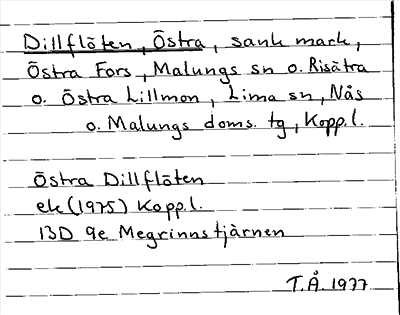 Dillflöten, Östra, sank mark,
Östra Fors, Malungs sn o. Risätra
o. Östra Lillmon, Lima sn, Nås
o. Malungs doms. tg, Kopp.l.
Östra Dillflöten
ek (1975) Kopp.l.
13D 9e Megrinnstjärnen
T.Å. 1977